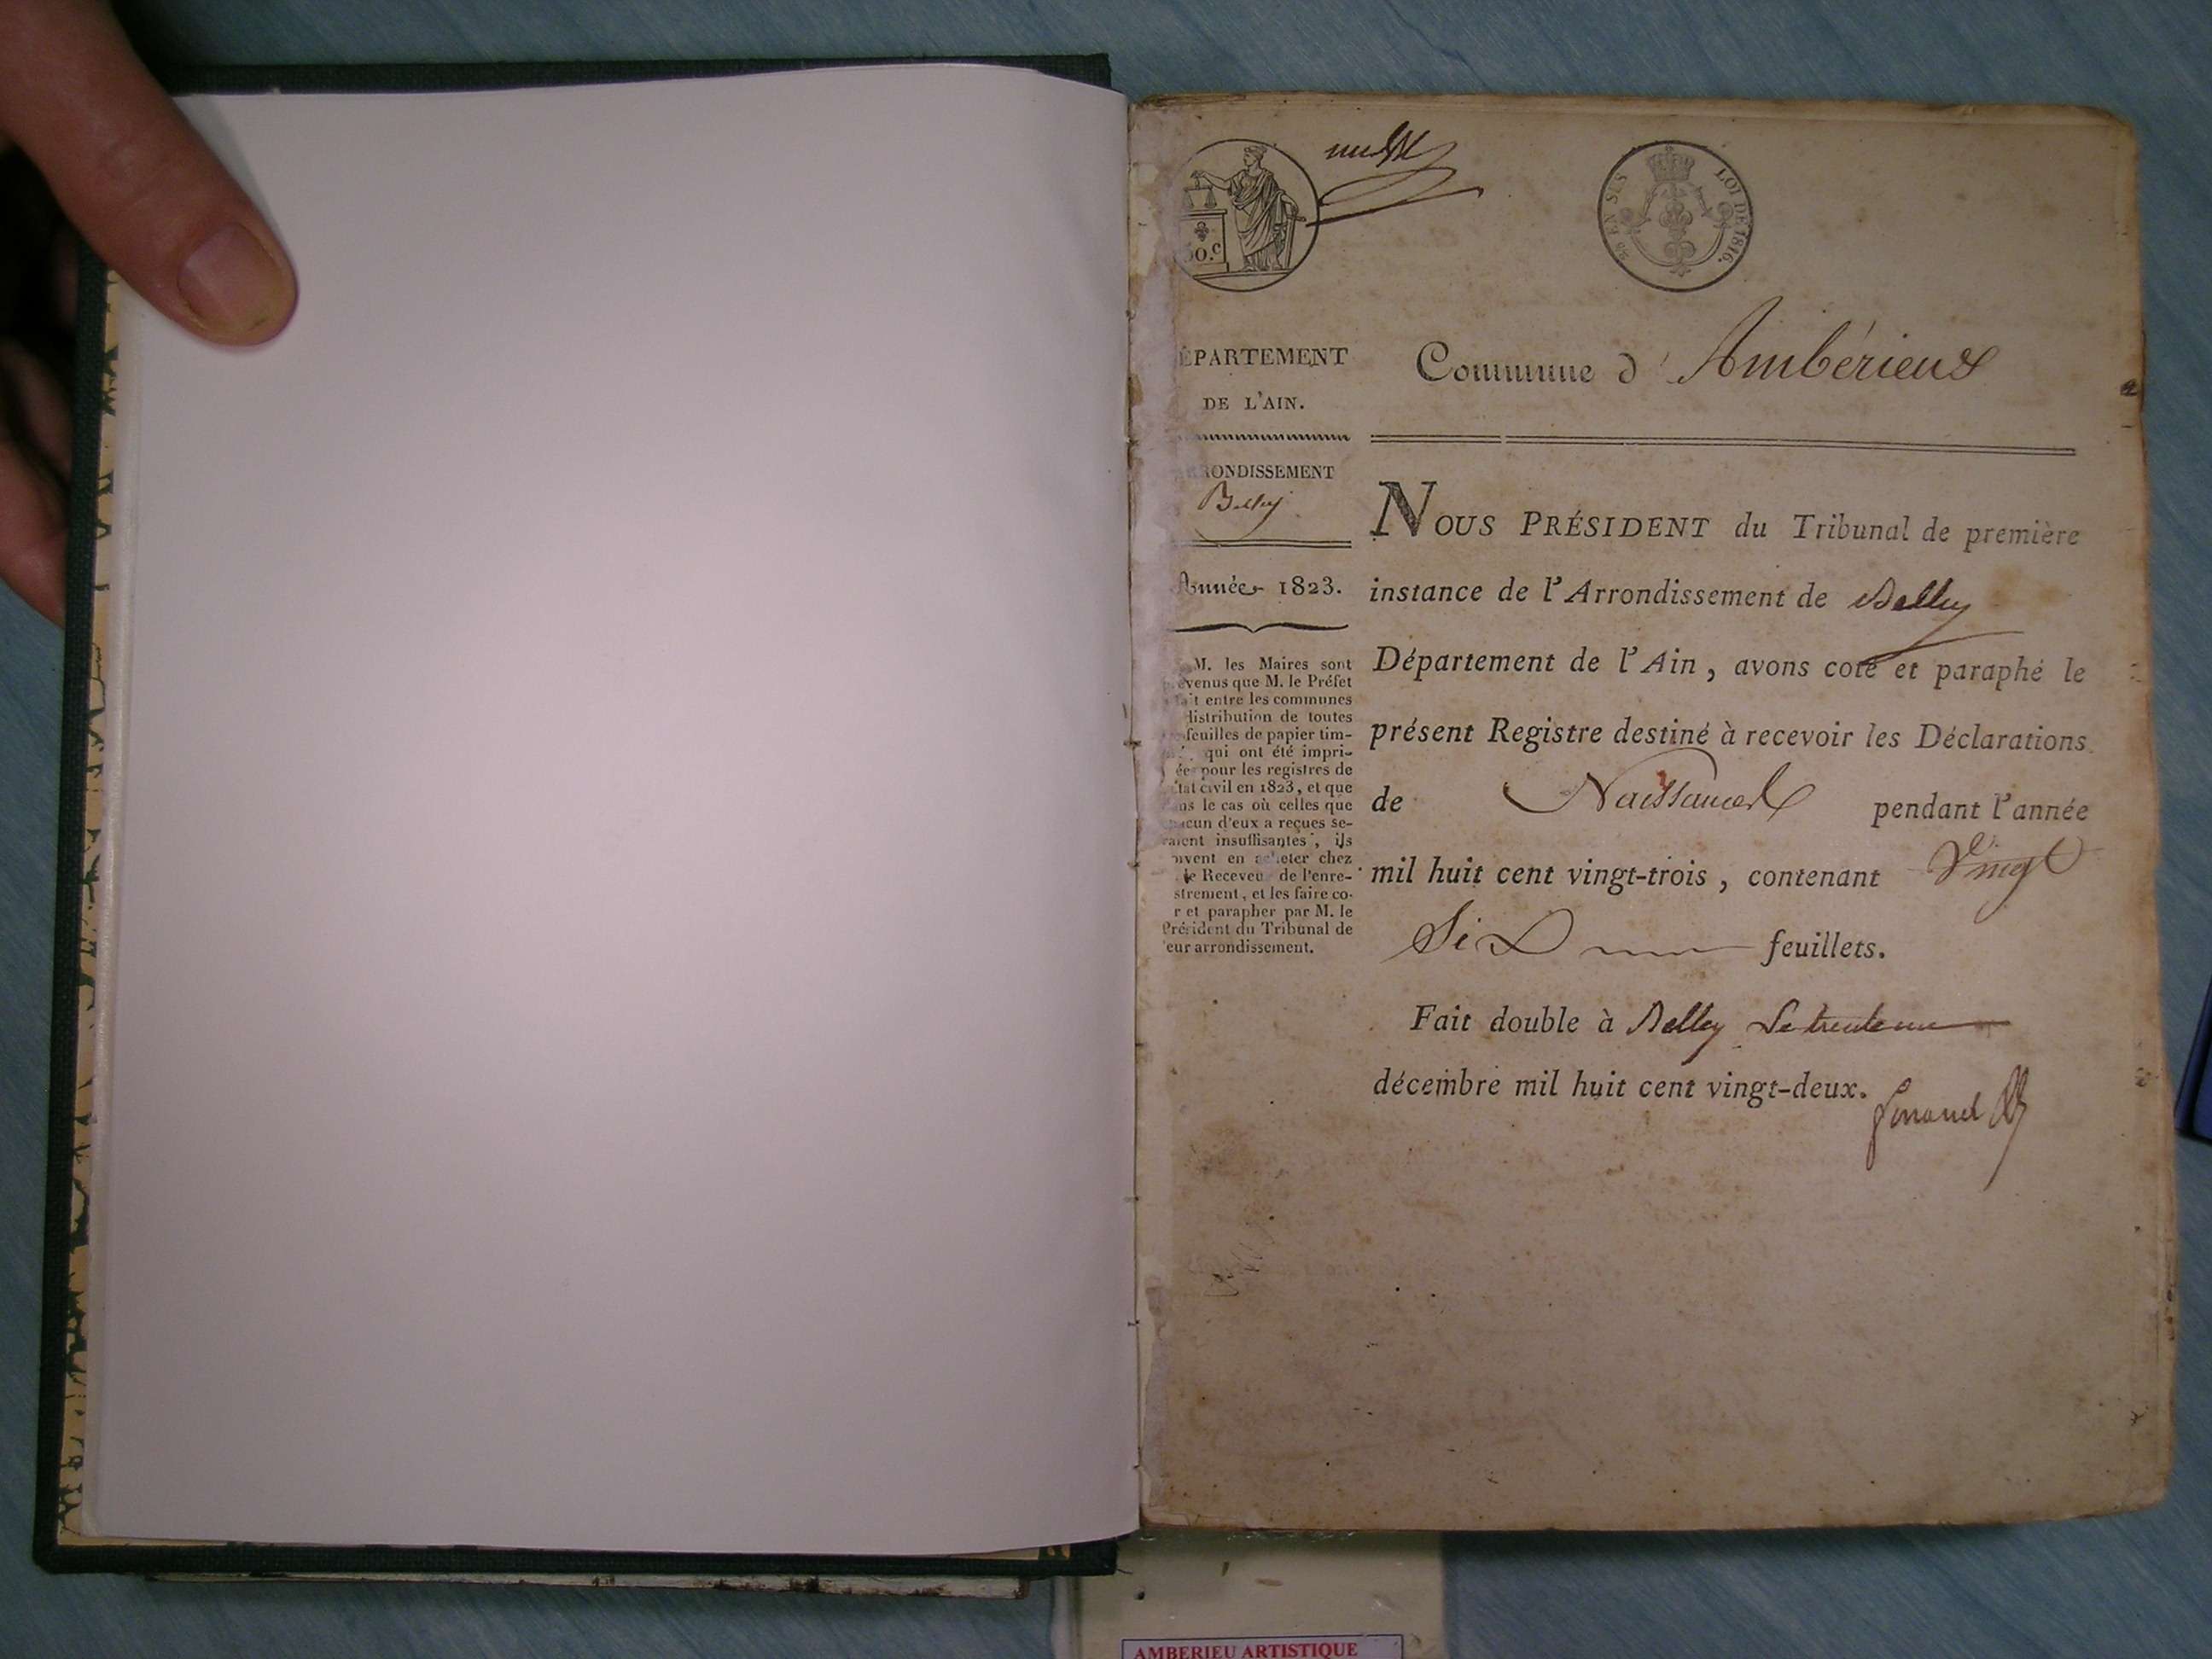 50.c
EN SUS
LOI DE 1816.
ÉPARTEMENT
DE L'AIN.
RONDISSEMENT
Belley
Année 1823.
M. les Maires sont
évenus que M. le Préfet
fait entre les communes
distribution de toutes
feuilles de papier tim-
qui ont été impri-
ée pour les registres de
état civil en 1823, et que
ns le cas où celles que
acun d'eux a reçues se-
raient insuffisantes, ils
uvent en acheter chez
le Receveu de l'enre-
strement, et les faire co-
r et parapher par M. le
Président du Tribunal de
eur arrondissement.
Commune d' Ambérieux
NOUS PRÉSIDENT du Tribunal de première
instance de l'Arrondissement de Belley
Département de l'Ain, avons coté et paraphé le
présent Registre destiné à recevoir les Déclarations
de Naissances pendant l'année
mil huit cent vingt-trois, contenant Vingt
Six feuillets.
Fait double à Belley Le trente un
décembre mil huit cent vingt-deux.
AMBERIEU ARTISTIQUE